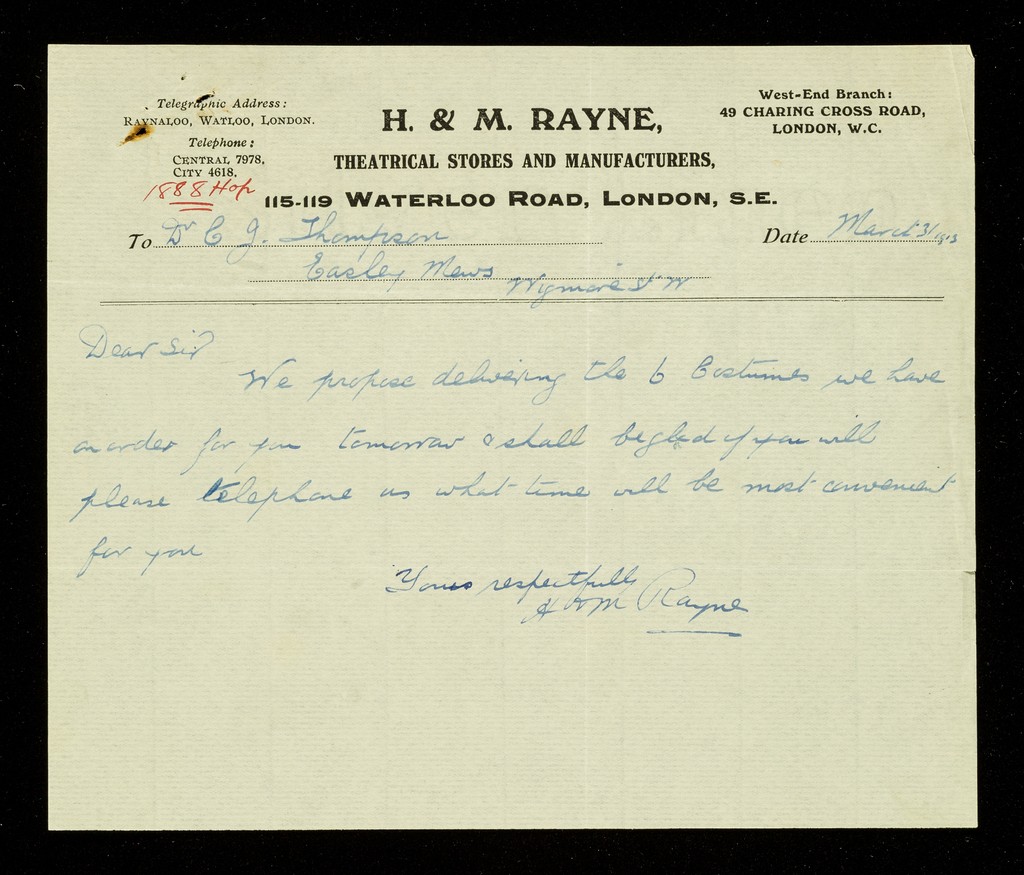 Telegraphic Address:
RAYNALOO, WATLOO, LONDON.
Telephone:
CENTRAL 7978.
CITY 4618.
1888 Hop
H. & M. RAYNE,
THEATRICAL STORES AND MANUFACTURERS,
115-119 WATERLOO ROAD, LONDON, S.E.
West-End Branch:
49 CHARING CROSS ROAD,
LONDON, W.C.
To Dr C J. Thompson
Easley Mews Wigmore St W
Date March 31/1913
Dear Sir
We propose delivering the 6 Costumes we have
on order for you tomorrow & shall be glad if you will
please telephone us what time will be most convenient
for you
Yours respectfully
H & M Rayne